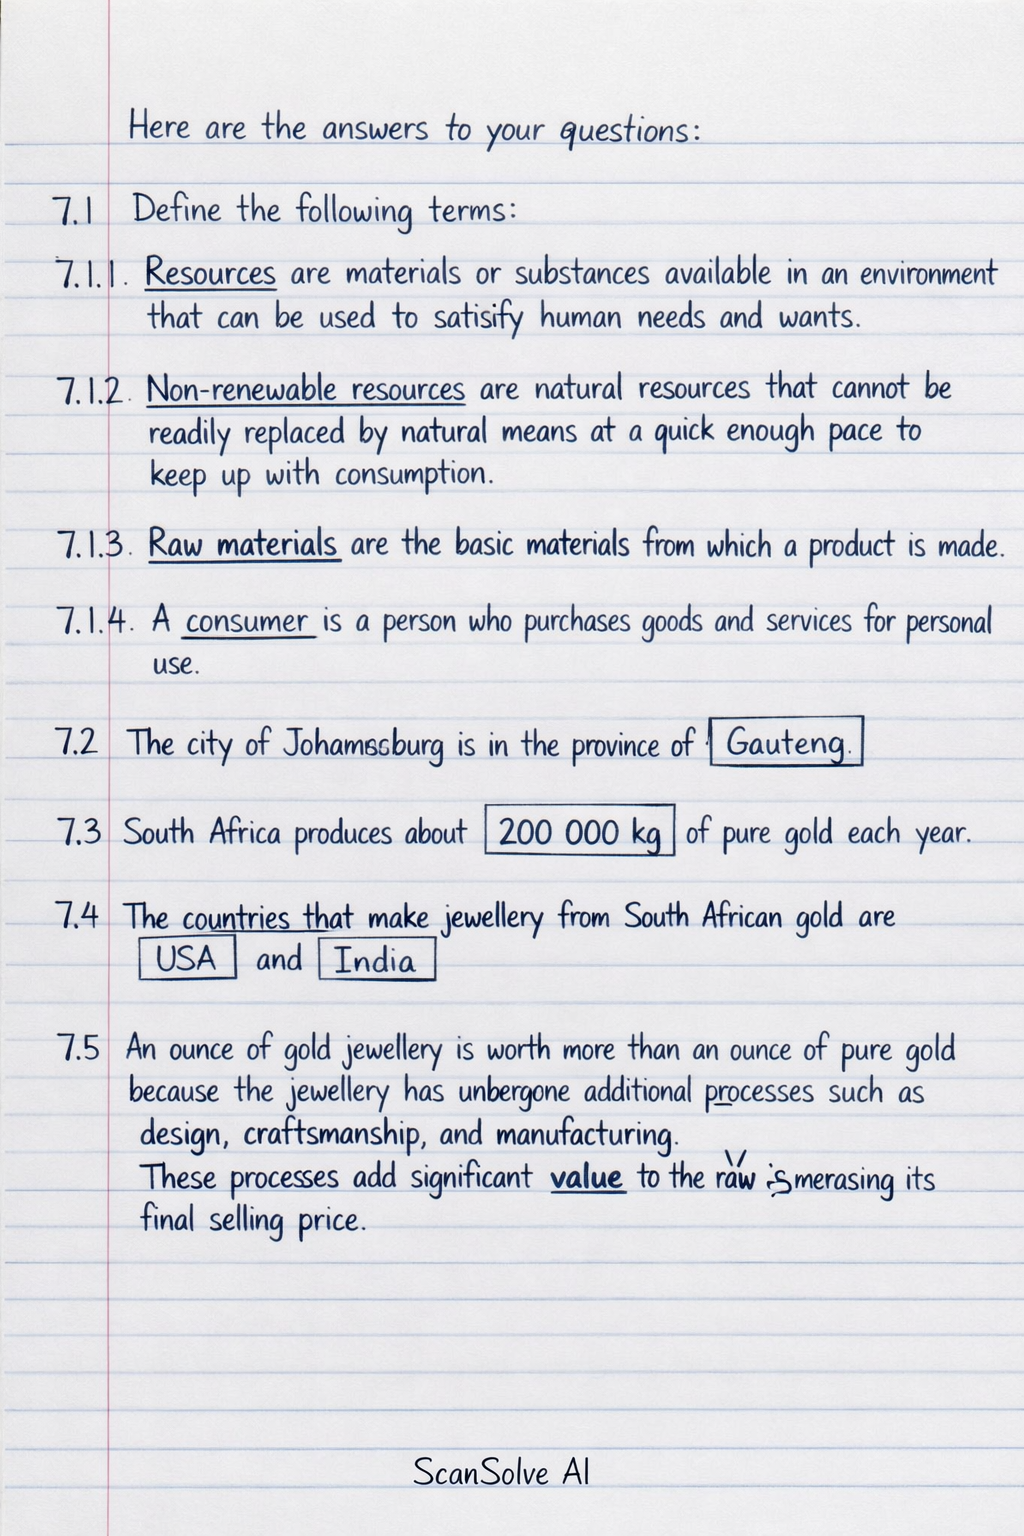 Here are the answers to your questions:
7.1 Define the following terms:
7.1.1. Resources are materials or substances available in an environment
that can be used to satisify human needs and wants.
7.1.2. Non-renewable resources are natural resources that cannot be
readily replaced by natural means at a quick enough pace to
keep up with consumption.
7.1.3. Raw materials are the basic materials from which a product is made.
7.1.4. A consumer is a person who purchases goods and services for personal
use.
7.2 The city of is in the province of Gauteng.
7.3 South Africa produces about 200 000 kg of pure gold each year.
7.4 The countries that make jewellery from South African gold are
USA and India
7.5 An ounce of gold jewellery is worth more than an ounce of pure gold
because the jewellery has unbergone additional processes such as
design, craftsmanship, and manufacturing.
These processes add significant value to the raw its
final selling price.
ScanSolve AI